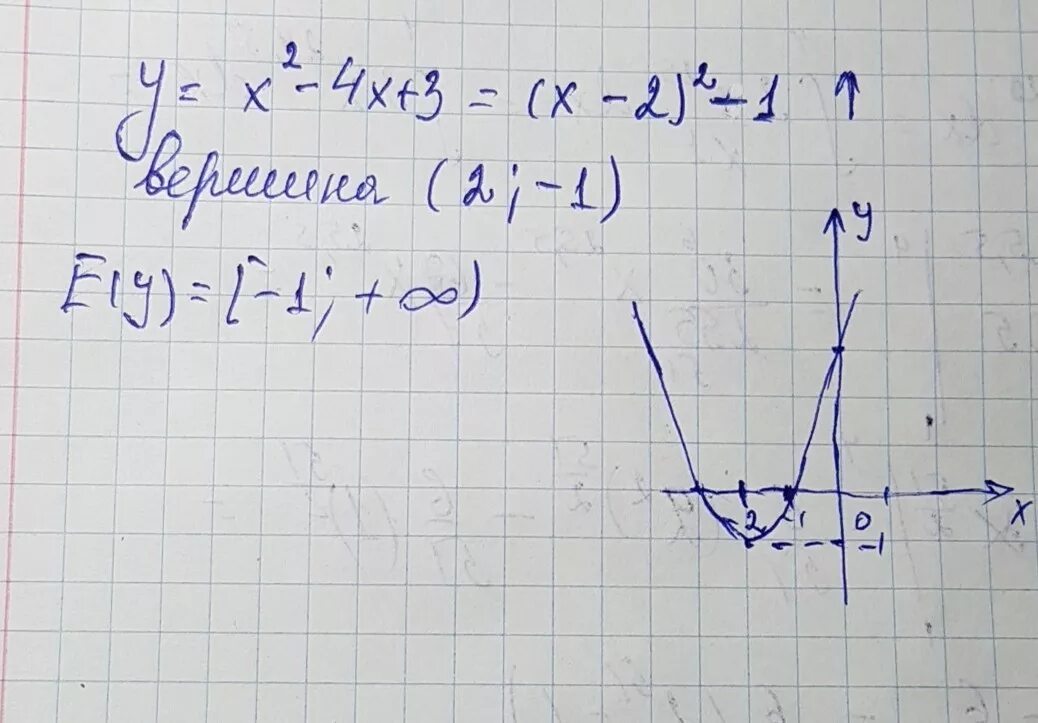 y = x² - 4x + 3 = (x - 2)² - 1 ↑
вершина (2; -1)
E(y) = [-1; +∞)
y
2 -1 0 x
-1